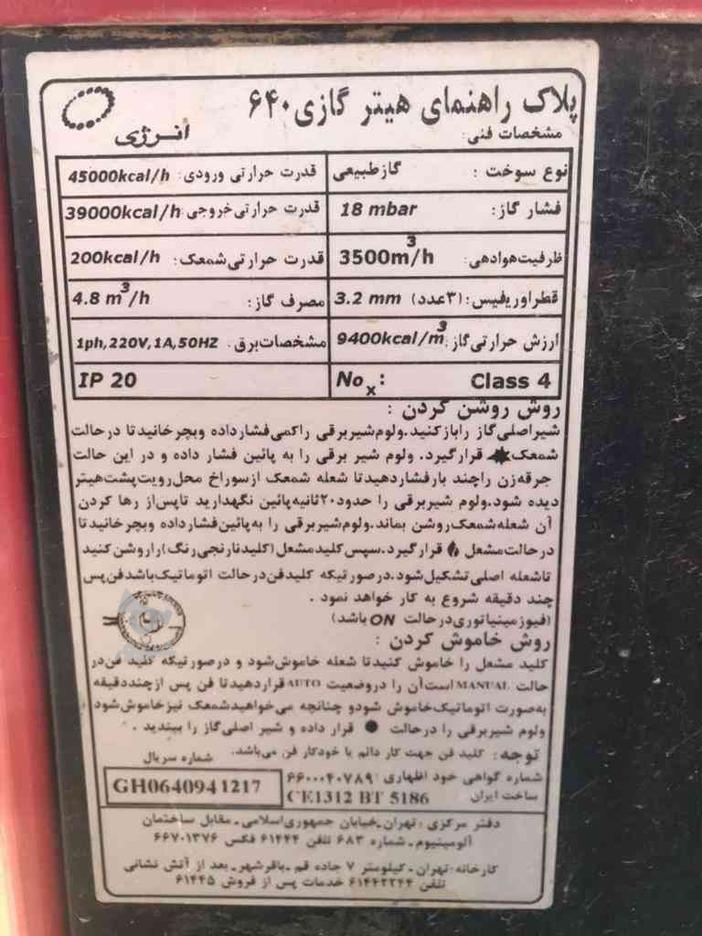 پلاک راهنمای هیتر گازی ۶۴۰
انرژی
مشخصات فنی:
نوع سوخت : گازطبیعی قدرت حرارتی ورودی: 45000kcal/h
فشار گاز: 18 mbar قدرت حرارتی خروجی: 39000kcal/h
ظرفیت هوادهی: 3500m³/h قدرت حرارتی شمعک: 200kcal/h
قطراوریفیس:(۳عدد) 3.2 mm مصرف گاز: 4.8 m³/h
ارزش حرارتی گاز: 9400kcal/m³ مشخصات برق: 1ph,220V,1A,50HZ
Noₓ: Class 4 IP 20
روش روشن کردن :
شیراصلی گاز رابازکنید.ولوم شیربرقی راکمی فشارداده وبچرخانیدتا درحالت
شمعک قرارگیرد. ولوم شیر برقی را به پائین فشار داده و در این حالت
جرقه زن راچند بارفشاردهیدتا شعله شمعک ازسوراخ محل رویت پشت هیتر
دیده شود.ولوم شیربرقی را حدود۲۰ثانیه پائین نگهدارید تاپس از رها کردن
آن شعله شمعک روشن بماند.ولوم شیربرقی را به پائین فشارداده وبچرخانیدتا
درحالت مشعل قرارگیرد.سپس کلیدمشعل(کلیدنارنجی رنگ)راروشن کنید
تاشعله اصلی تشکیل شود.درصورتیکه کلیدفن درحالت اتوماتیک باشدفن پس
چند دقیقه شروع به کار خواهد نمود .
(فیوزمینیاتوری درحالت ON باشد)
روش خاموش کردن :
کلید مشعل را خاموش کنیدتا شعله خاموش شود و درصورتیکه کلید فن در
حالت MANUAL است آن را دروضعیت AUTO قراردهیدتا فن پس ازچنددقیقه
به صورت اتوماتیک خاموش شودو چنانچه می خواهیدشمعک نیزخاموش شود
ولوم شیربرقی را درحالت ● قرار داده و شیر اصلی گاز را ببندید .
توجه: کلید فن جهت کار دائم یا خودکار فن می باشد.
شماره سریال
GH0640941217
شماره گواهی خود اظهاری ۶۶۰۰۰۴۰۷۸۹
ساخت ایران CE1312 BT 5186
دفتر مرکزی : تهران.خیابان جمهوری اسلامی. مقابل ساختمان
آلومینیوم. شماره ۶۸۳ تلفن ۶۱۴۴۴ فکس ۶۶۷۰۱۳۷۶
کارخانه:تهران. کیلومتر ۷ جاده قم .باقرشهر. بعد از آتش نشانی
تلفن ۶۱۴۴۲۲۴۴ خدمات پس از فروش ۶۱۴۴۵